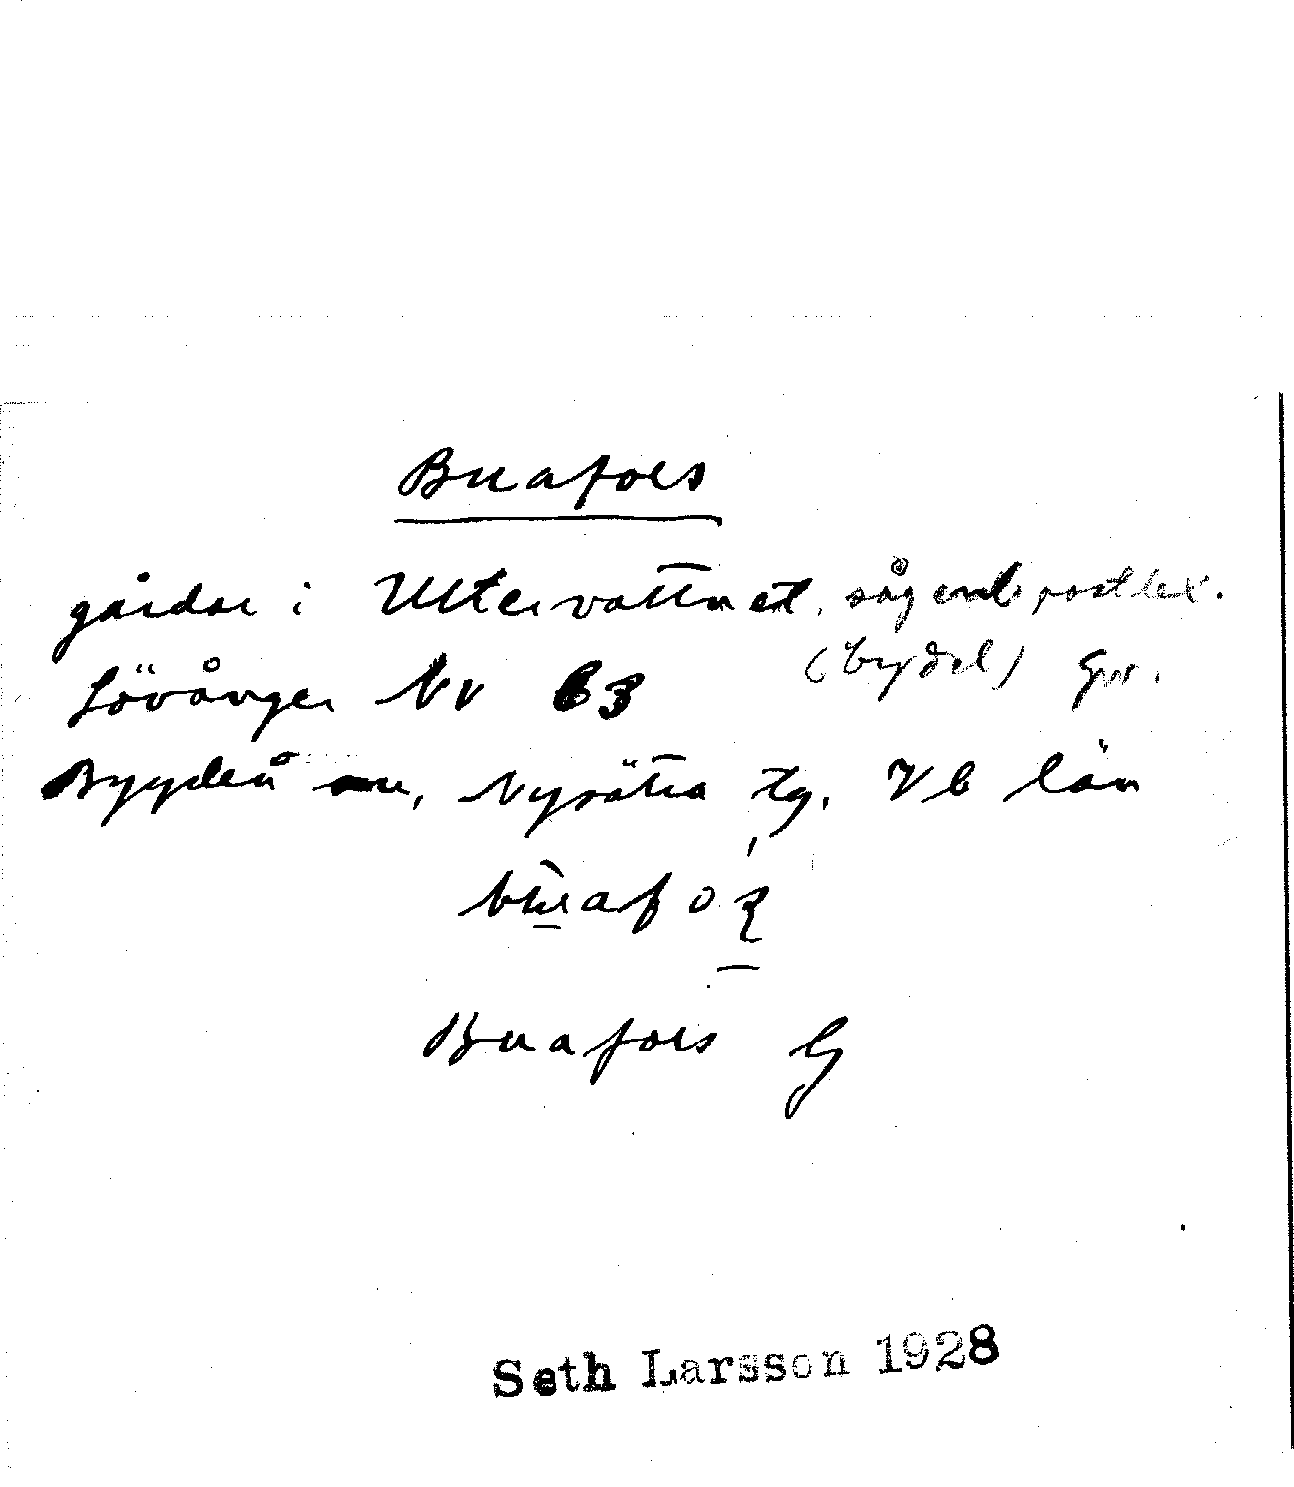 Buafors
gårdar i Uttervattnet, såg enl. postlex.
(bydel) Gvr.
Lövånger NV 63
Bygdeå sn, Nysätra tg. Vb län
Buafors G
Seth Larsson 1928